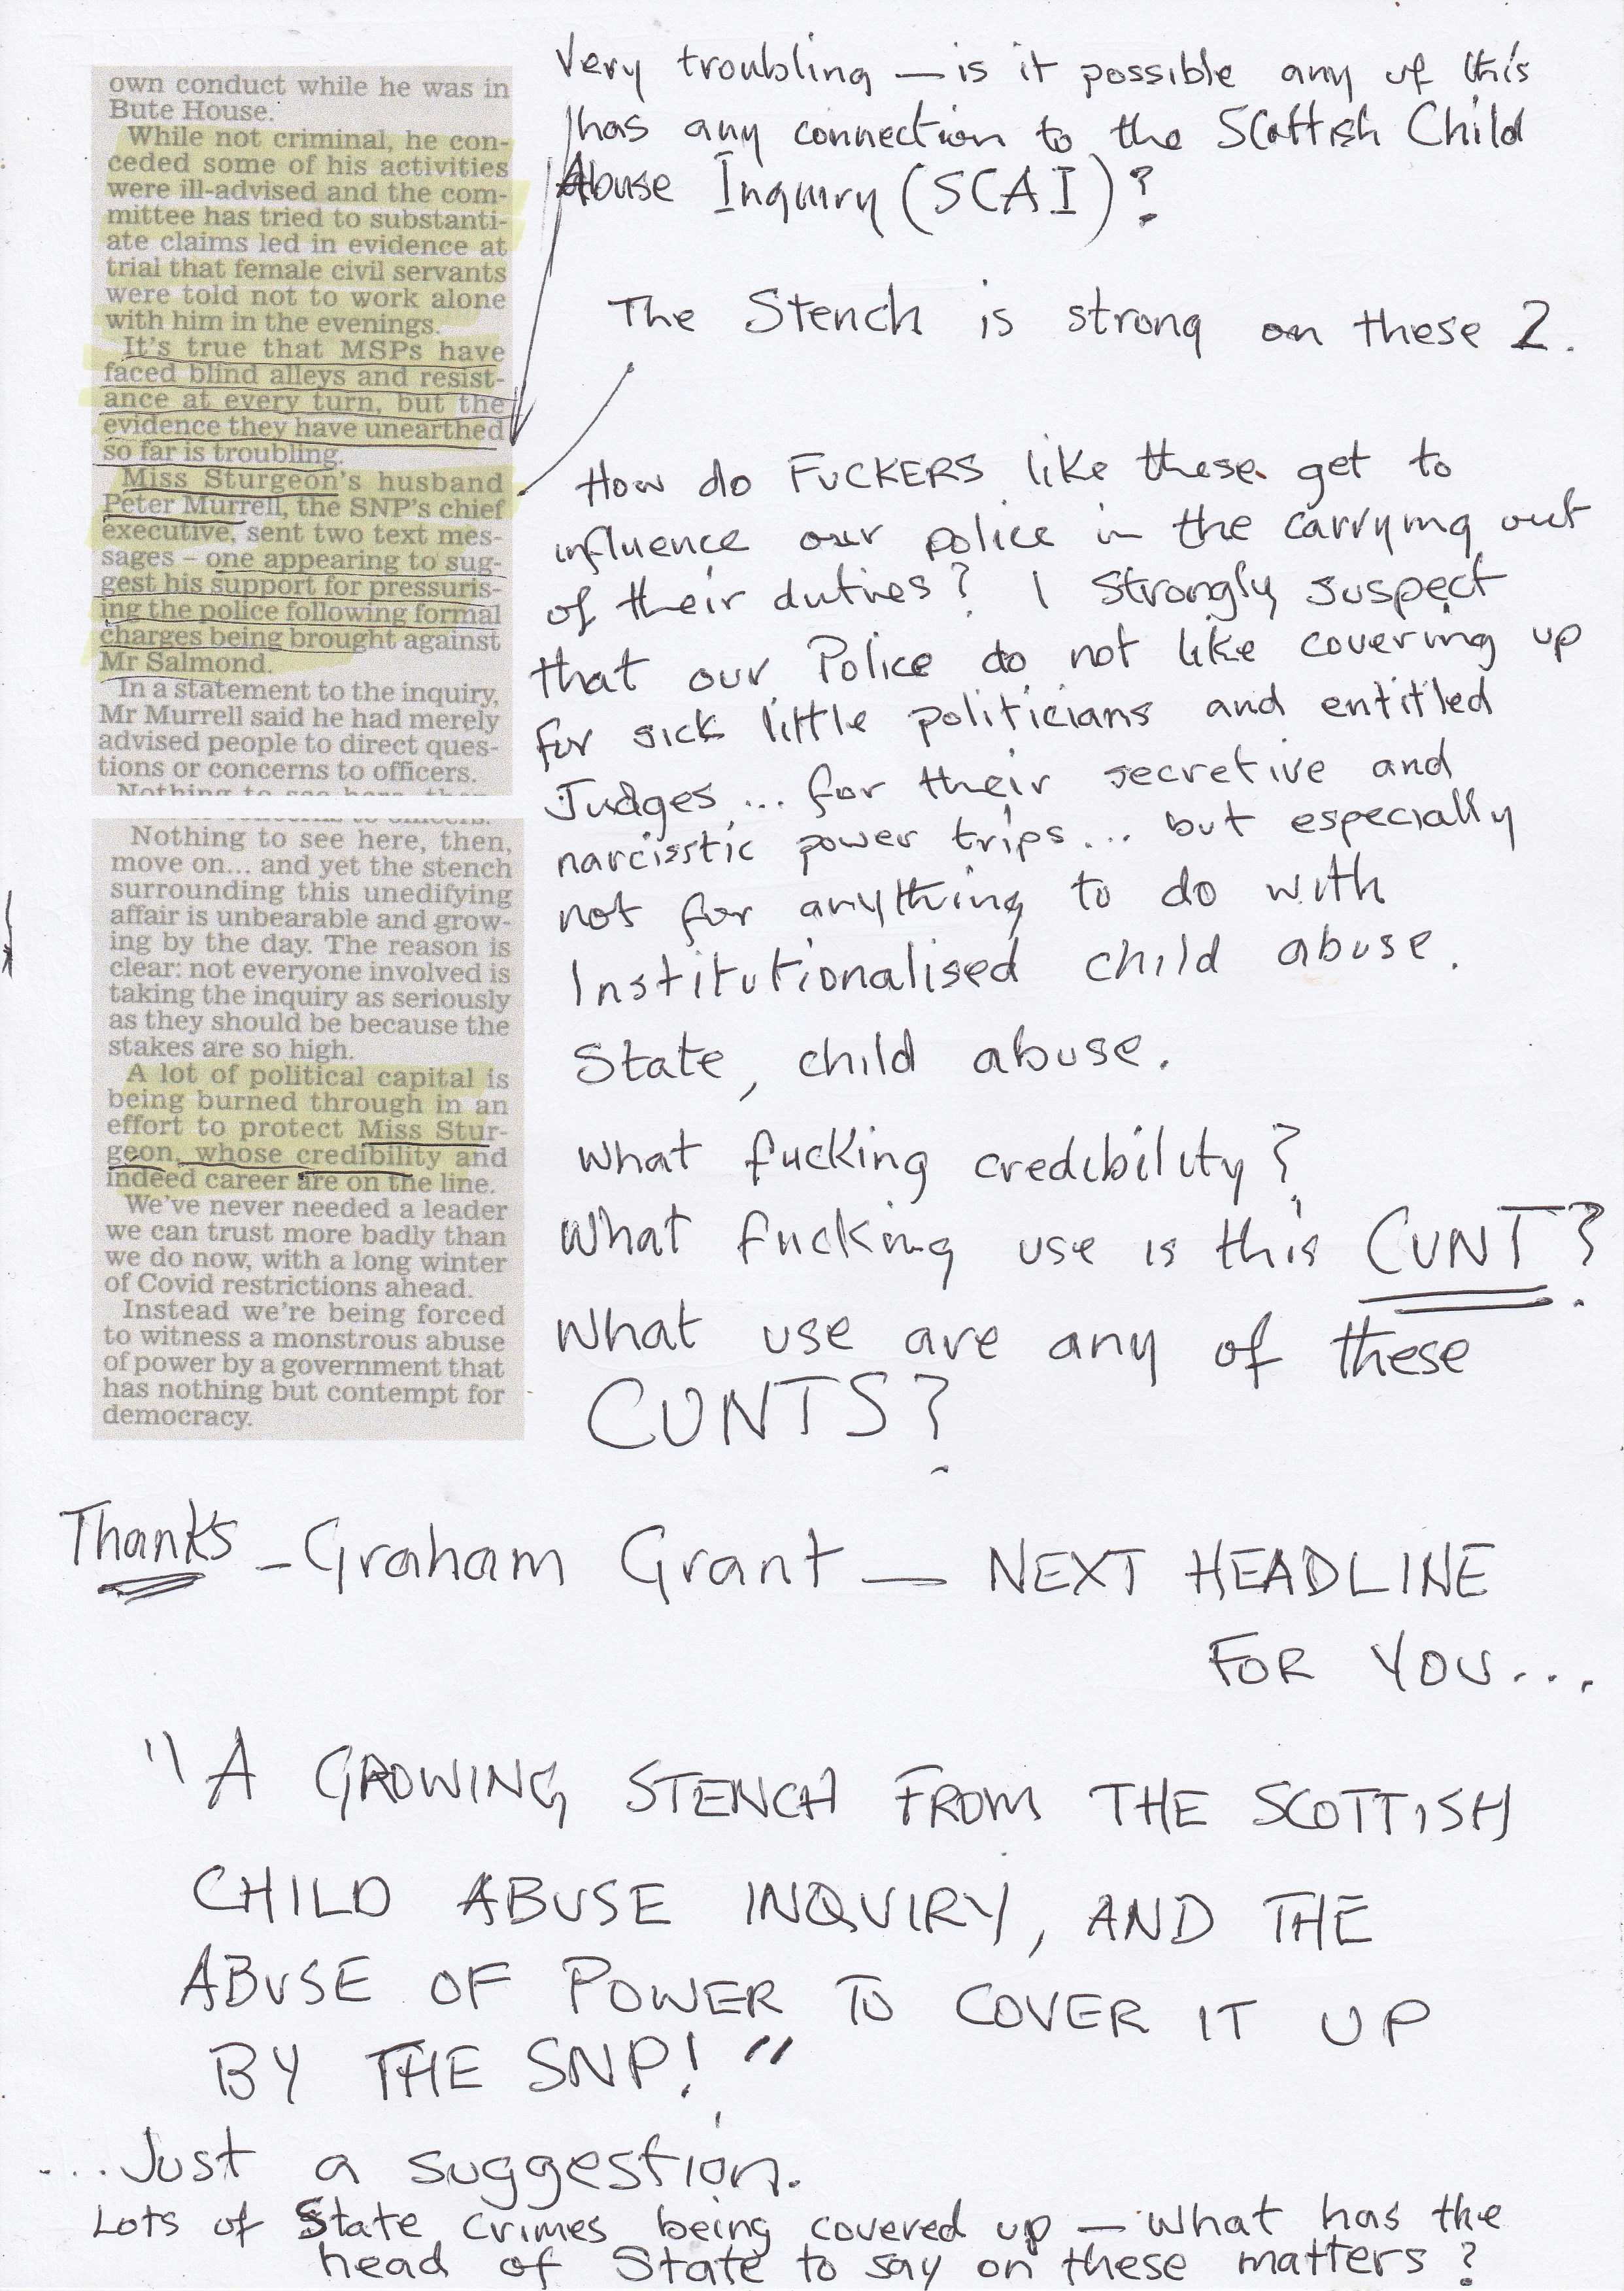 own conduct while he was in
Bute House.
While not criminal, he con-
ceded some of his activities
were ill-advised and the com-
mittee has tried to substanti-
ate claims led in evidence at
trial that female civil servants
were told not to work alone
with him in the evenings.
It's true that MSPs have
faced blind alleys and resist-
ance at every turn, but the
evidence they have unearthed
so far is troubling.
Miss Sturgeon's husband
Peter Murrell, the SNP's chief
executive, sent two text mes-
sages – one appearing to sug-
gest his support for pressuris-
ing the police following formal
charges being brought against
Mr Salmond.
In a statement to the inquiry,
Mr Murrell said he had merely
advised people to direct ques-
tions or concerns to officers.
Nothing to see here, then,
Nothing to see here, then,
move on... and yet the stench
surrounding this unedifying
affair is unbearable and grow-
ing by the day. The reason is
clear: not everyone involved is
taking the inquiry as seriously
as they should be because the
stakes are so high.
A lot of political capital is
being burned through in an
effort to protect Miss Stur-
geon, whose credibility and
indeed career are on the line.
We've never needed a leader
we can trust more badly than
we do now, with a long winter
of Covid restrictions ahead.
Instead we're being forced
to witness a monstrous abuse
of power by a government that
has nothing but contempt for
democracy.
Very troubling – is it possible any of this
has any connection to the Scottish Child
Abuse Inquiry (SCAI)?
The Stench is strong on these 2.
How do FUCKERS like these get to
influence our police in the carrying out
of their duties? I strongly suspect
that our Police do not like covering up
for sick little politicians and entitled
Judges... for their secretive and
narcisstic power trips... but especially
not for anything to do with
Institutionalised child abuse.
State, child abuse.
What fucking credibility?
What fucking use is this CUNT?
What use are any of these
CUNTS?
Thanks – Graham Grant — NEXT HEADLINE
FOR YOU...
"A GROWING STENCH FROM THE SCOTTISH
CHILD ABUSE INQUIRY, AND THE
ABUSE OF POWER TO COVER IT UP
BY THE SNP!"
...Just a suggestion.
Lots of State crimes being covered up – what has the
head of State to say on these matters?